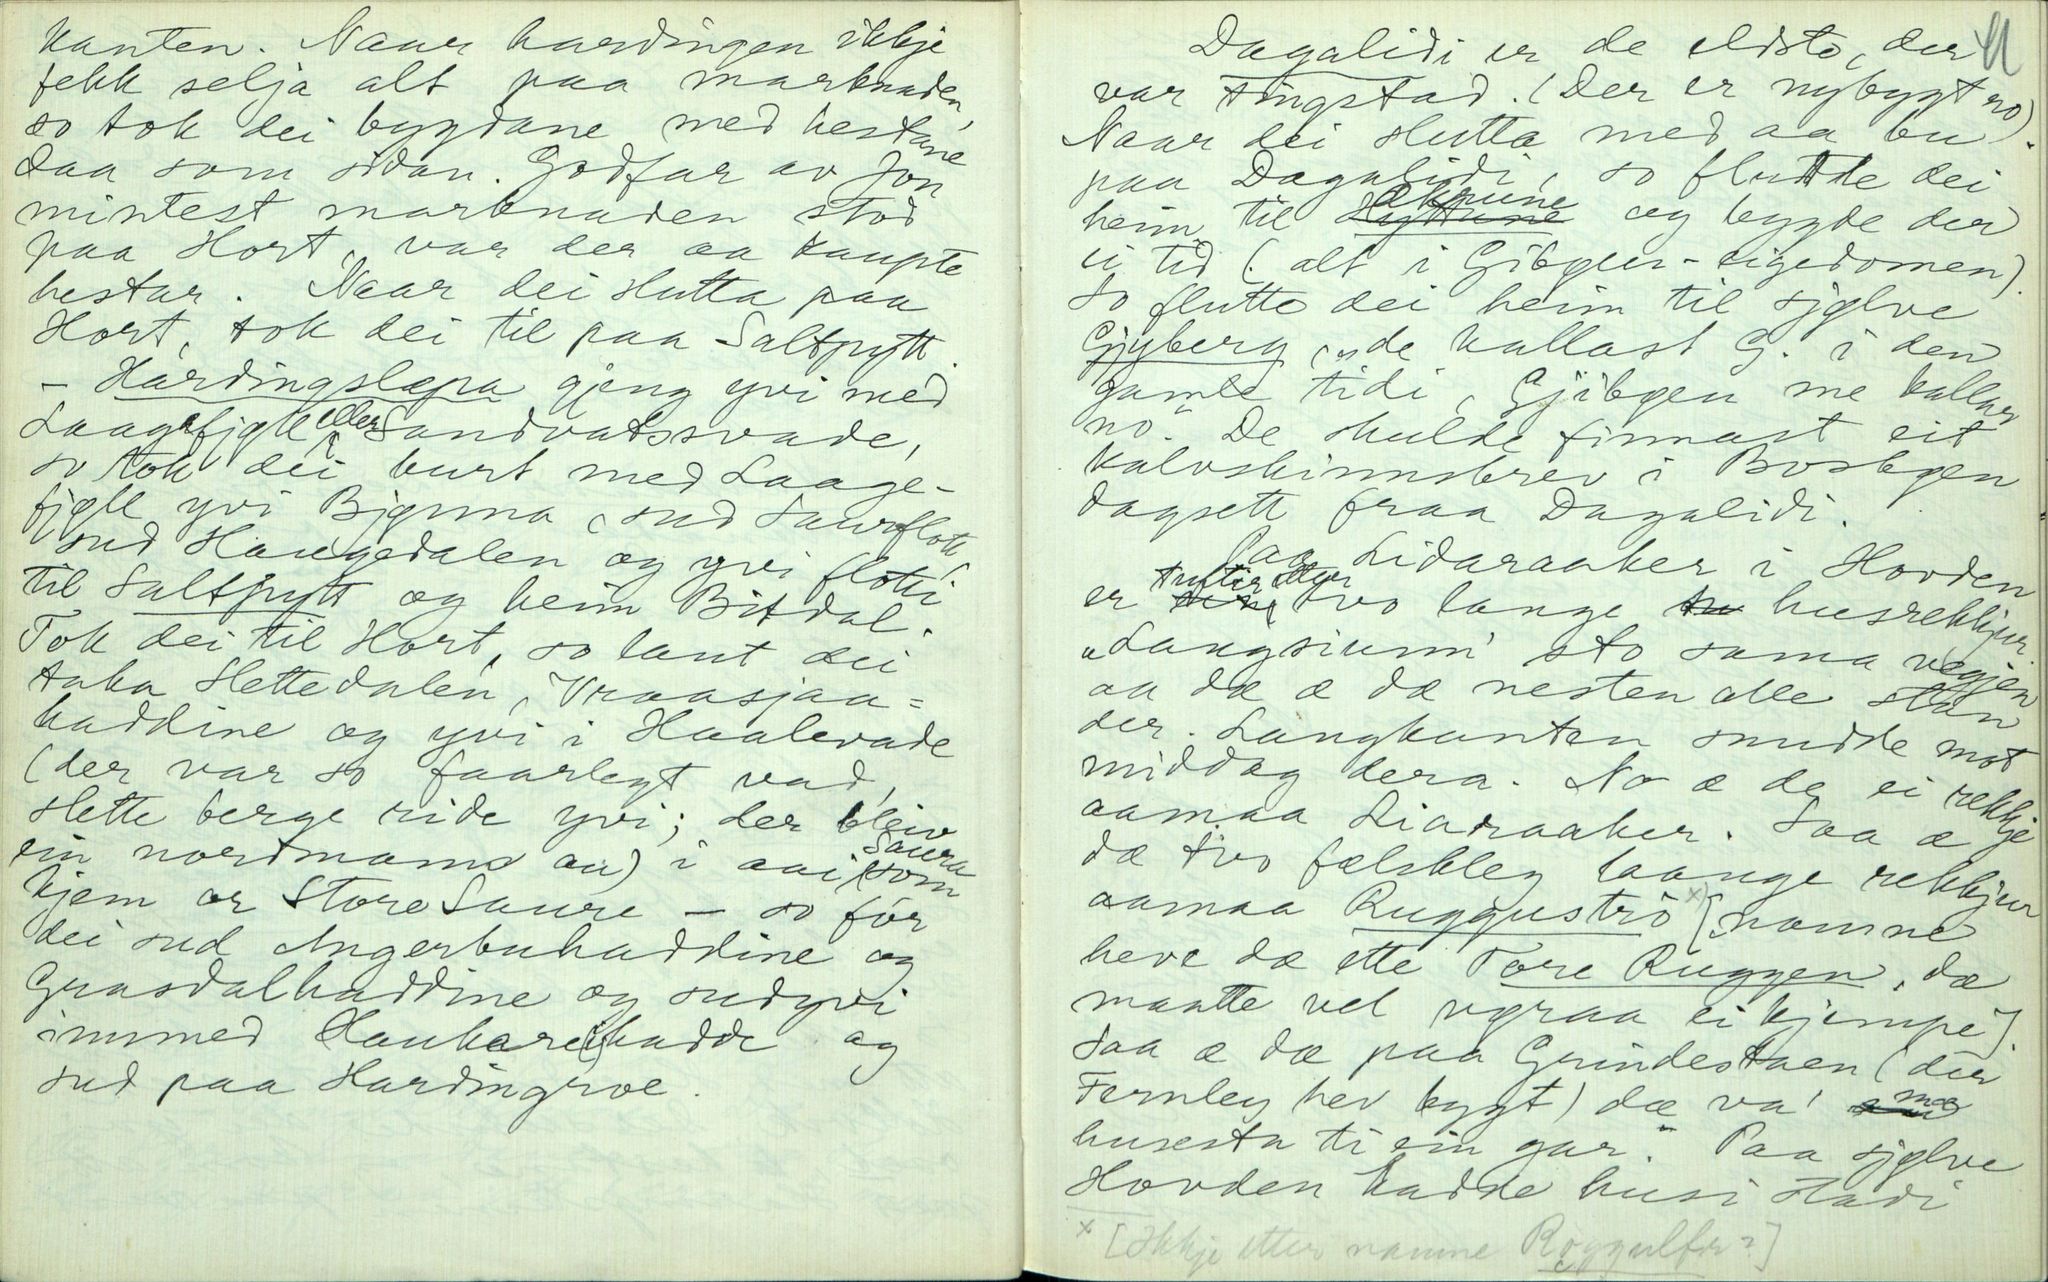 kanten. Naar hardingen ikkje
fekk selja alt paa marknaden,
so tok dei bygdane med hestane
daa som sidan. Godfar av Jon
mintest marknaden stod
paa Hort, var der aa kaupte
hestar. Naar dei slutta paa
Hort, tok dei til paa Saltpytt.
- Hardingsløpa gjeng yvi med
Laagefjøll eller Sandvatssvade,
so tok dei burt med Laage-
fjøll yvi Bjønna, sud Saureflott,
sud Haugedalen og yvi flotti
til Saltpytt og heim Bitdal.
Tok dei til Hort, so laut dei
taka Slettedalen, Vraasjaa=
haddine og yvi i Haalevade
(der var so faarlegt vad,
slette berge ride yvi; der bleiv
ein nordmann au) i aai Saura som
kjem or Store Saure - so for
dei sud Angerbuhaddine og
Grasdalhaddine og sudyvi
innmed Haukareihadde og
sud paa Hardingroe.
Dagalidi er de eldsto, der
var tingstad. (Der er nybygt no).
Naar dei slutta med aa bu
paa Dagalidi, so flutte dei
heim til Hyttune økrune og bygde der
ei tid (alt i Gibøen-eigedomen).
So flutte dei heim til sjølve
Gjyberg, "de kallast G. i den
gamle tidi, Gjibøen me kallar
no". De skulde finnast eit
kalvskinnsbrev i Bosbøen
dagsett fraa Dagalidi.
Paa Lidaraaker i Hovden
er tuftir etter tvo lange husrekkjur.
"Langsiunn' sto sama vegjen
aa dæ æ dæ nesten alle stan
der. Langkanten snudde mot
middag dera. No æ de ei rekkje
aamaa Liaraaker. Saa æ
dæ tvo fælskleg laange rekkjur
aamaa Ruggustrò x) [namne
heve dæ ette Tore Ruggen, dæ
maatte vel vøraa ei kjempe].
Saa æ dæ paa Grindestaen (der
Fernley hev bygt) dæ va' mæ
husesta ti ein gar". Paa sjølve
Hovden hadde husi stadi
x [Ikkje etter namne Roggulfr?]